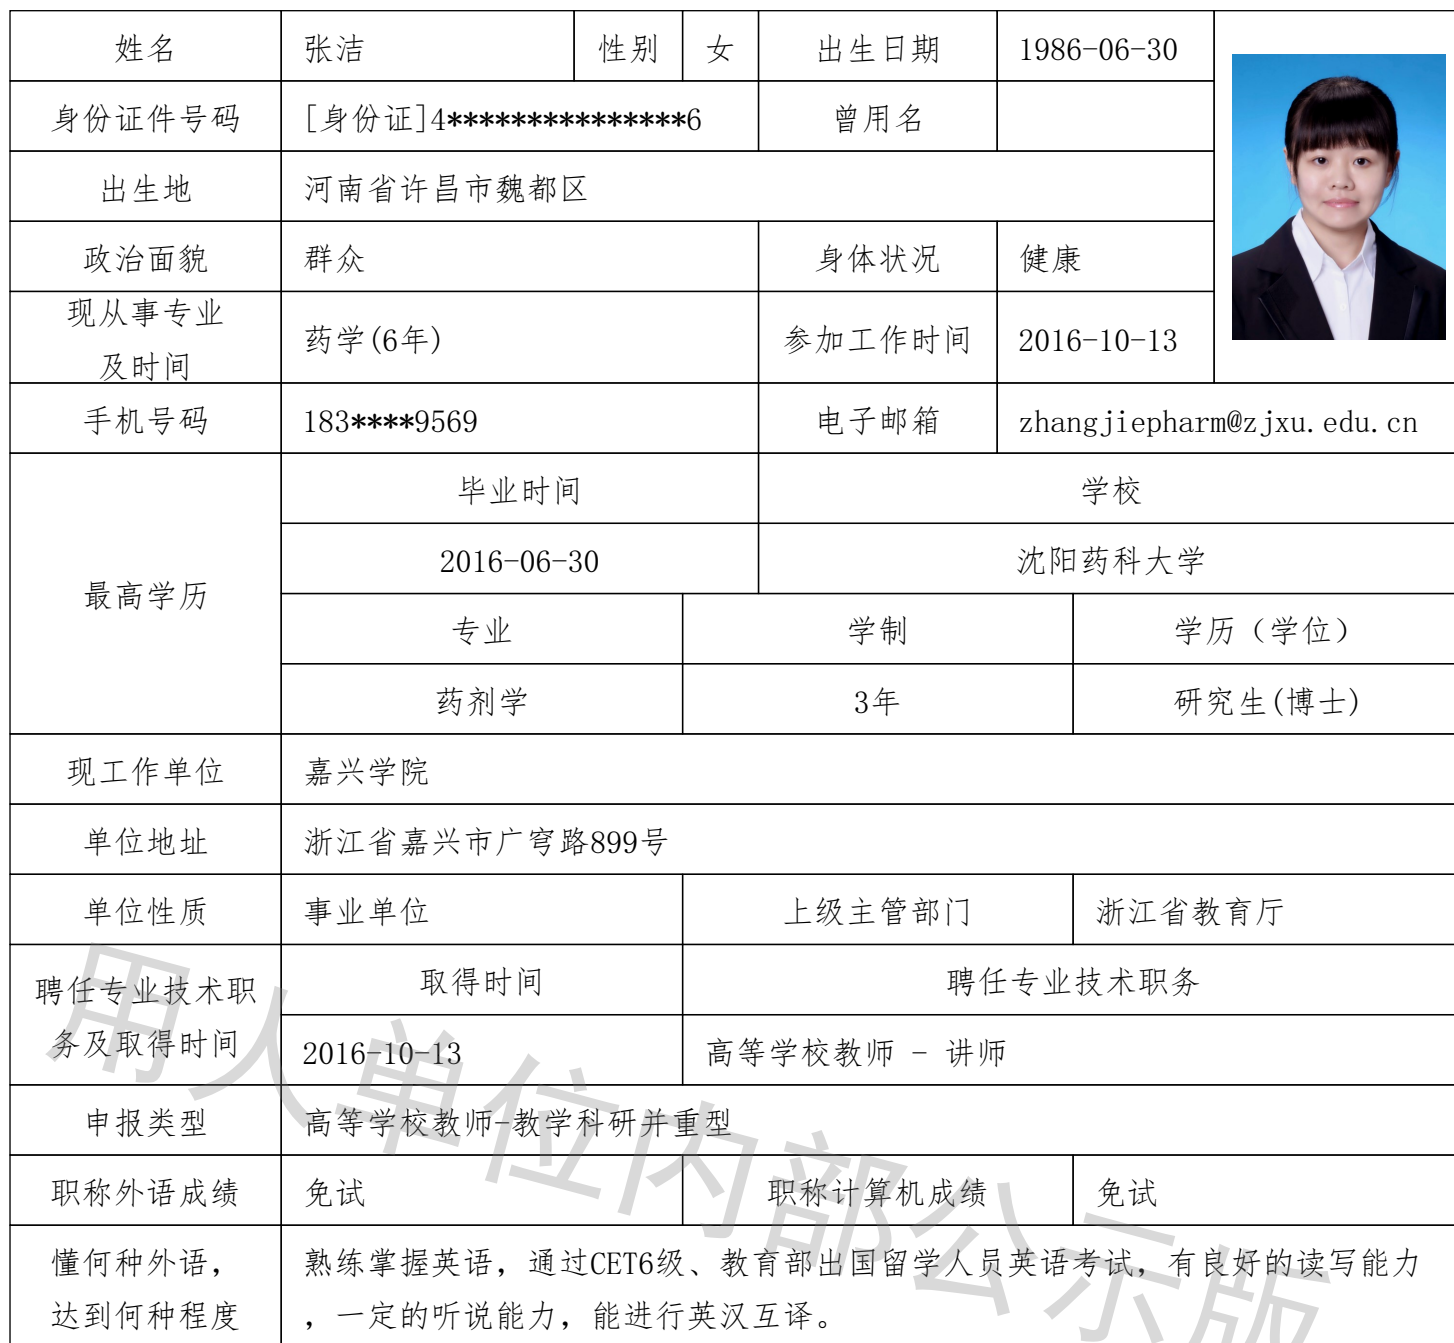 姓名 张洁 性别 女 出生日期 1986-06-30
身份证件号码 [身份证]4***************6 曾用名
出生地 河南省许昌市魏都区
政治面貌 群众 身体状况 健康
现从事专业
及时间 药学(6年) 参加工作时间 2016-10-13
手机号码 183****9569 电子邮箱 zhangjiepharm@zjxu.edu.cn
最高学历
毕业时间 学校
2016-06-30 沈阳药科大学
专业 学制 学历（学位）
药剂学 3年 研究生(博士)
现工作单位 嘉兴学院
单位地址 浙江省嘉兴市广穹路899号
单位性质 事业单位 上级主管部门 浙江省教育厅
聘任专业技术职
务及取得时间
取得时间 聘任专业技术职务
2016-10-13 高等学校教师 - 讲师
申报类型 高等学校教师-教学科研并重型
职称外语成绩 免试 职称计算机成绩 免试
懂何种外语，
达到何种程度
熟练掌握英语，通过CET6级、教育部出国留学人员英语考试，有良好的读写能力
，一定的听说能力，能进行英汉互译。
用人单位内部公示版